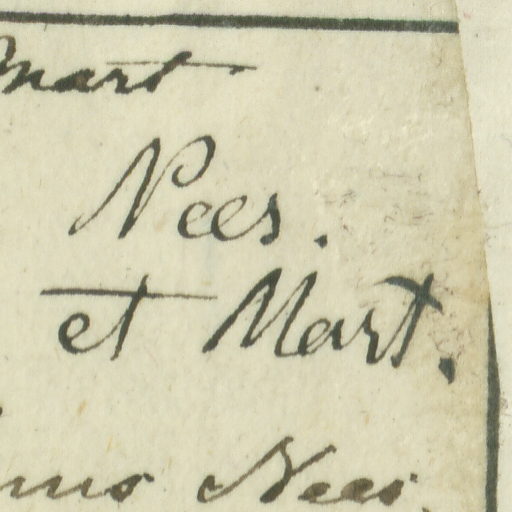 Mart
Nees.
et Mart.
Nees.